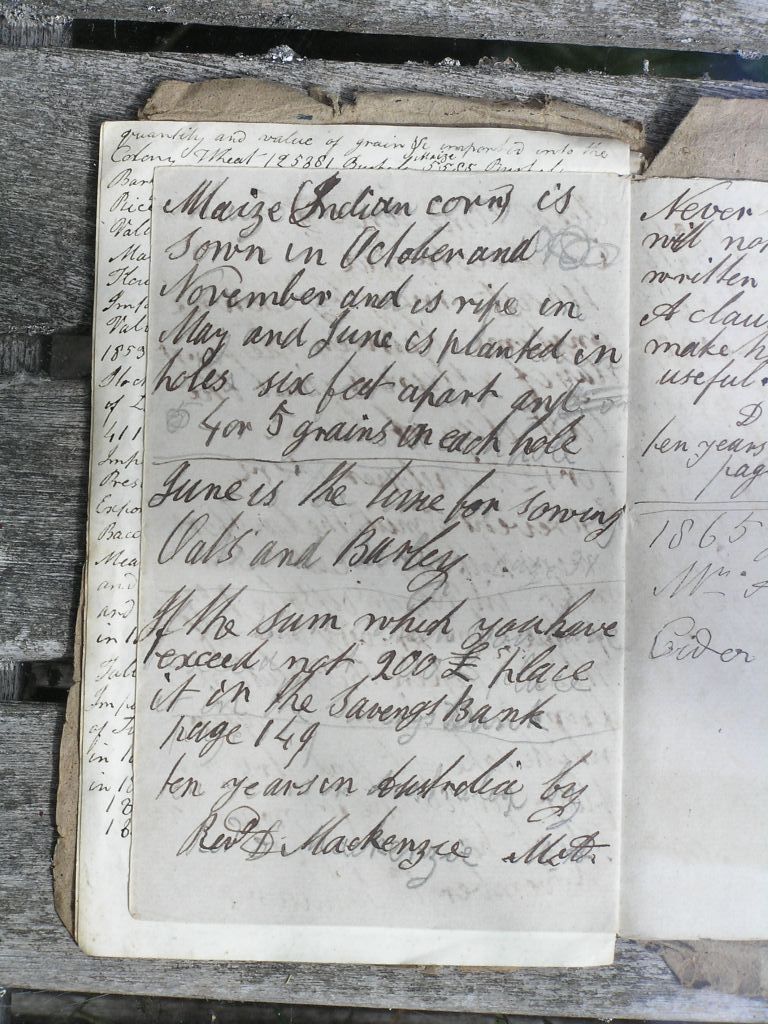 quantity and value of grain &c imported into the
Colony Wheat 125381 Bushels Maize 5585 Bushels
Maize (Indian corn) is
sown in October and
November and is ripe in
May and June is planted in
holes six feet apart and
4 or 5 grains in each hole
June is the time for sowing
Oats and Barley
If the sum which you have
exceed not 200 £s place
it in the Savengs Bank
page 149
ten years in Australia by
Revd D. Mackenzie M.A.
Bar
Rice
Valu
Ma
Impo
Valu
1853
of
411
Imp
Pres
Expo
Bacc
Mea
and
and
in 1
Impo
in 1
in 18
18
18
Never
will no
written
A clau
make h
useful
D
ten years
pag
1865
Mr
Cider